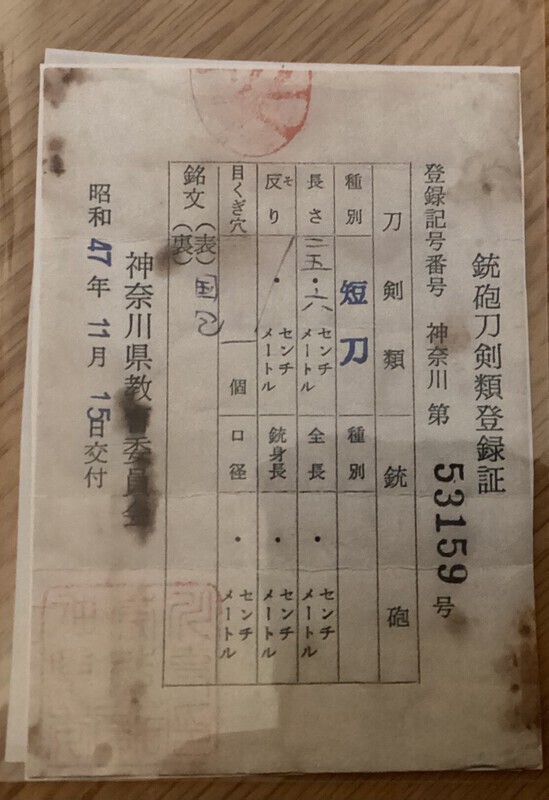 銃砲刀剣類登録証
登録記号番号 神奈川 第 53159 号
刀剣類 銃砲
種別 短刀 種別
長さ 二五・六 センチメートル 全長 ・ センチメートル
反り そ ・ センチメートル 銃身長 ・ センチメートル
目くぎ穴 一個 口径 ・ センチメートル
銘文(表)国
(裏)
神奈川県教育委員会
昭和47年11月15日交付